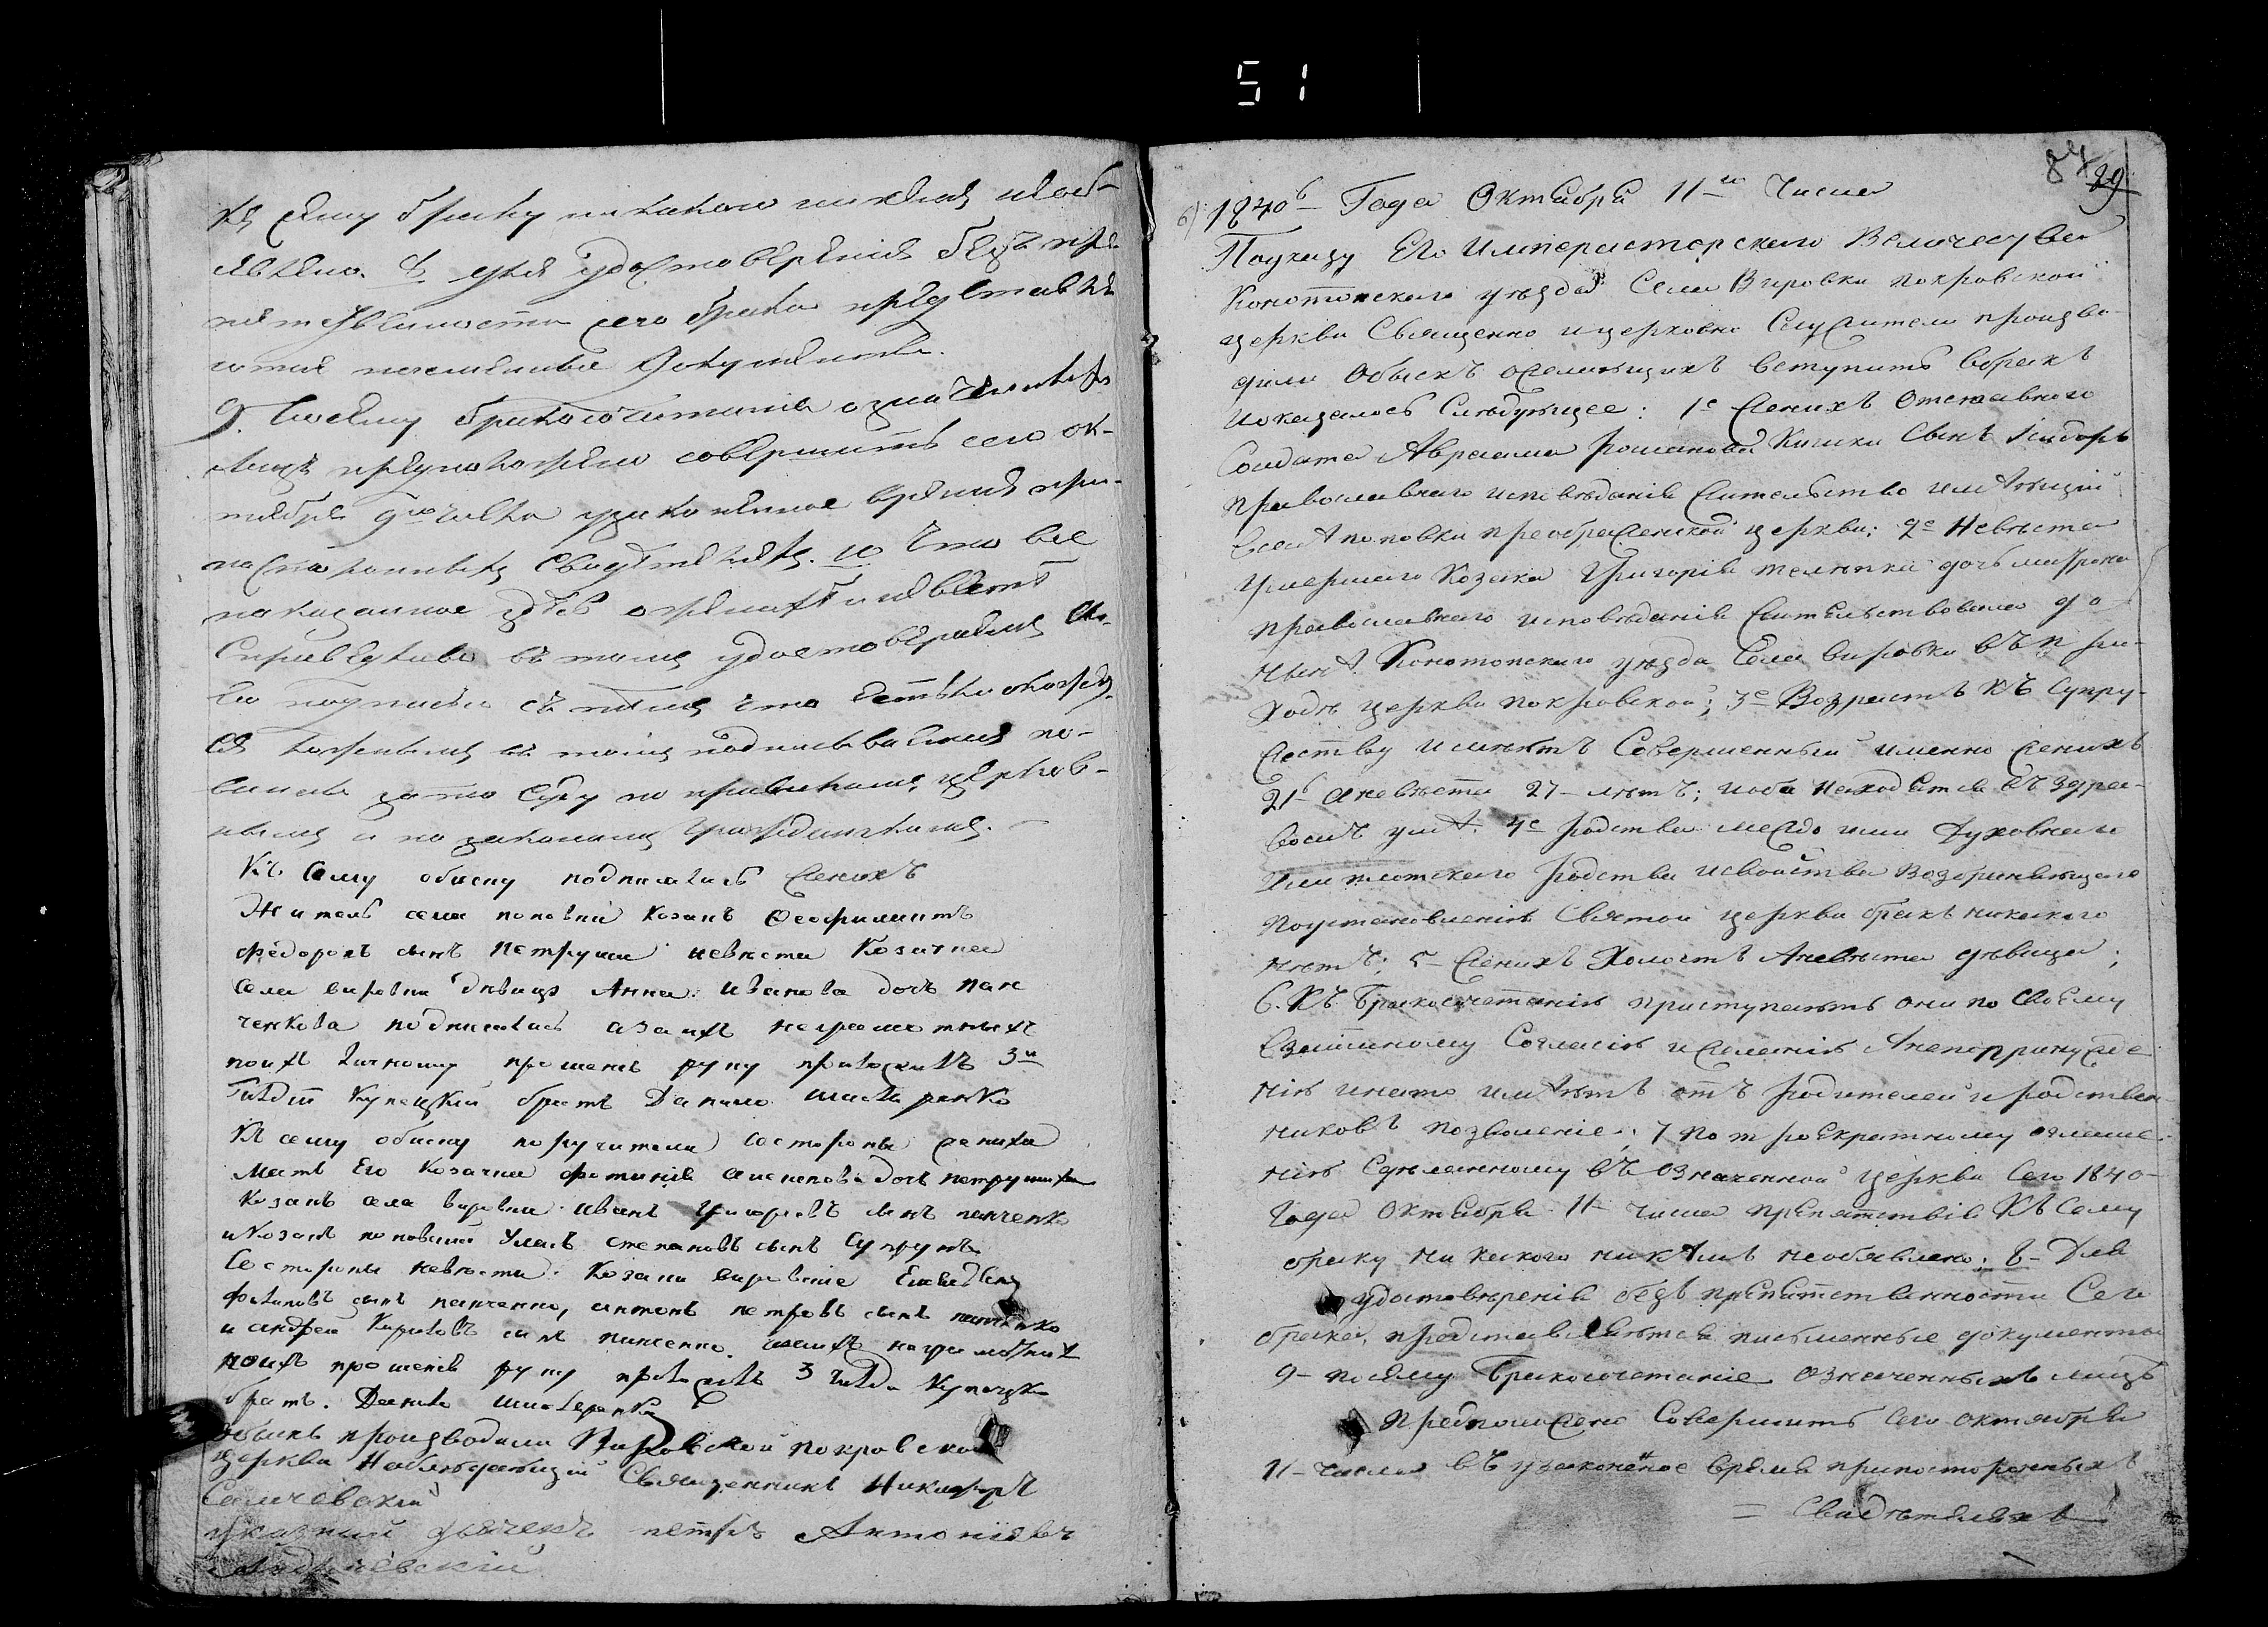 51
къ сему браку никакого никемъ необ-
явлено. 8. для удостоверения безъ пре-
пятственности сего брака представля-
ютия писменные документы.
9. Посему бракосочитание означенныхъ
лицъ предположено совершить сего ок-
тября 9го числа узаконенное время при
посторонныхъ свидетеляхъ. 10 Что все
показанное здесь о женихе и невесте
справедливо въ томъ удостоверяемъ сво-
ею подписью съ темъ что естьли окажет-
ся ложнымъ в томъ подписываемся по-
винны зато суду по правиламъ церков-
нымъ и по законамъ гражданскимъ.
Къ Сему обиску подписались женихъ
Житель села поповки козакъ Феофилактъ
федоровъ сынъ петруша невеста Козачка
села вировки девица Анна Иванова дочъ пан
ченкова подписались азаихъ неграмотныхъ
поихъ личному прошенъ руку приложилъ 3и
Гилдіи Купецкий братъ Данило
Къ сему обиску поручители состороны жениха
Мать Его Козачка дочъ петрушиха
Козакъ села вировки иванъ григориевъ сынъ панченко
и Козакъ поповский степановъ сынъ Супрунъ
Состороны невесты Козаки вировские
сынъ панченко, антонъ петровъ сынъ панченко
и андрей Кириловъ сынъ панченко. неграмотныхъ
поихъ прошенія руку приложилъ 3 Гилд. Купецки
братъ. Данило
Обыскъ производили Вировской покровской
Церкви Наблюдающій Священникъ Никифоръ
указний дьячекъ петръ Антониевъ
84 39
6) 1840 Года Октября 11го Числа
Поуказу Его Императорскаго Величества
Конотопскаго уезда Села Вировки покровской
церкви Священно ицерковно Служители произво-
дили Обыскъ ожелающихъ вступить вбракъ
Иоказалось Следующее: 1е женихъ Отставного
Солдата Авраама романова Сынъ Исидоръ
православнаго исповеданія жительство имеющій
вселе поповки преображенской церкви; 2е Невеста
умершаго Козака Григорія дочь
православнаго исповеданія жительствовала до
ныне Конотопскаго уезда Села вировки въ при-
ходе церкви покровской; 3е Возрастъ къ супру-
жеству имеютъ Совершенный именно женихъ
21 аневеста 27 летъ; иоба находятся въ здра-
вомъ уме. 4е родства между ими Духовнаго
или плотскаго родства исвойства Возбраняющаго
поустановленію Святой церкви бракъ никакого
нетъ; 5 женихъ Холостъ Аневеста девица;
6. Къ Бракосочетанію приступаютъ они по своему
взаимному Согласію ижеланію Анепопринужде
нію инато имеютъ отъ родителей и родствен
никовъ позволеніе; 7 по троекратному оглаше-
нію Сделанному въ означенной церкви Сего 1840
Года Октября 11 числа препятствія Къ Сему
браку ни какого никемъ необявлено; 8 Для
удостоверенія безъ препятственности Сего
брака, представляются письменные документы
9 посему Бракосочетаніе означенныхъ лицъ
предположено Совершить сего октября
11 числа въ узаконеное время припосторонныхъ
= Свидетеляхъ